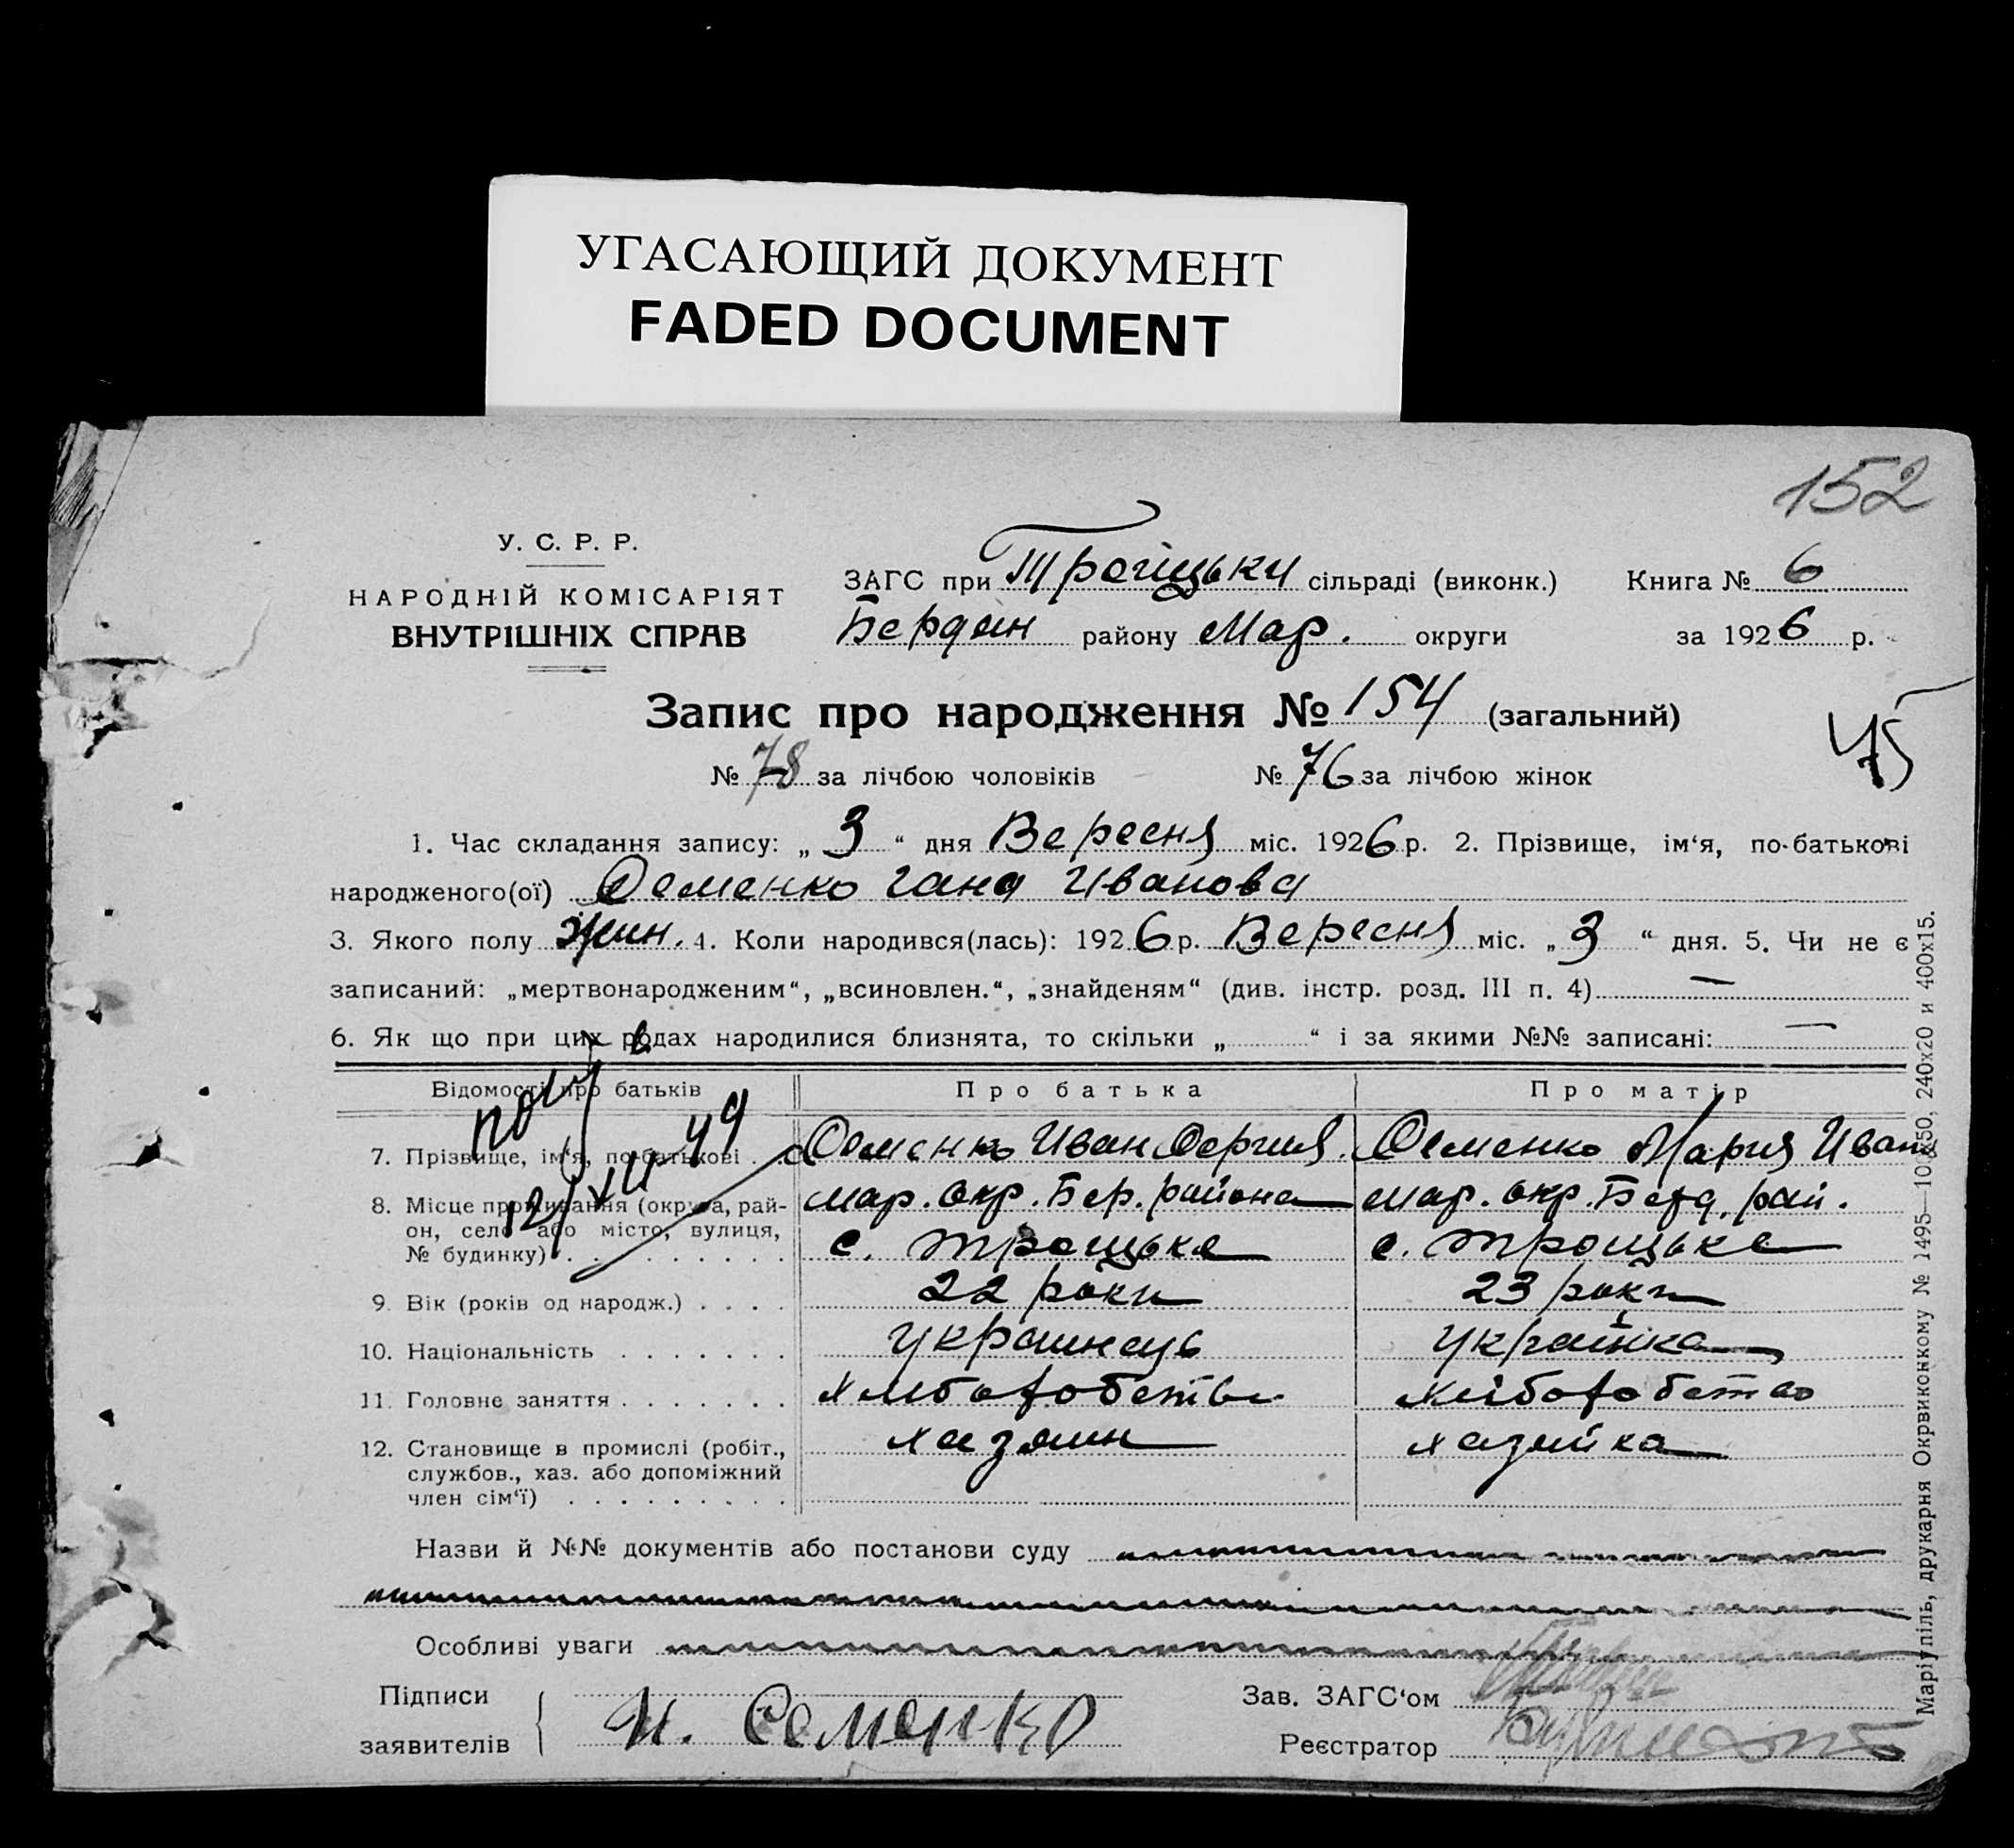 УГАСАЮЩИЙ ДОКУМЕНТ
FADED DOCUMENT
152
У. С. Р. Р.
НАРОДНІЙ КОМІСАРІЯТ
ВНУТРІШНІХ СПРАВ
ЗАГС при Троіцьки сільраді (виконк.) Книга № 6
Бердян району Мар. округи за 1926 р.
Запис про народження № 154 (загальний)
45
№ 78 за лічбою чоловіків № 76 за лічбою жінок
1. Час складання запису: „ 3 “ дня Вересня міс. 1926 р. 2. Прізвище, ім‘я, по-батькові
народженого(ої) Семенко Гана Иванова
3. Якого полу жин. 4. Коли народився(лась): 1926 р. Вересня міс. „ 3 “ дня. 5. Чи не є
записаний: „мертвонародженим“, „всиновлен.“, „знайденям“ (див. інстр. розд. III п. 4) —
6. Як що при цих родах народилися близнята, то скільки „ “ і за якими №№ записані: —
Відомості про батьків Про батька Про матір
7. Прізвище, ім‘я, по-батькові . . Семенко Иван Сергия. Семенко Мария Иван
8. Місце проживання (округа, рай- Мар. Окр. Бер. района Мар. окр. Берд. рай.
он, село або місто, вулиця, с. Троцьке с. Троцьке
№ будинку) . . . . . . . . . .
9. Вік (років од народж.) . . . . 22 роки 23 роки
10. Національність . . . . . . . Украинець Украінка
11. Головне заняття . . . . . . . хлиборобство хліборобство
12. Становище в промислі (робіт., хазяин хазяйка
службов., хаз. або допоміжний
член сім‘ї) . . . . . . . . . .
12/XII 49
Назви й №№ документів або постанови суду
Особливі уваги
Підписи Зав. ЗАГС‘ом
заявителів И. Семенко Реєстратор
Маріупіль, друкарня Окрвиконкому № 1495—10×50, 240x20 и 400x15.